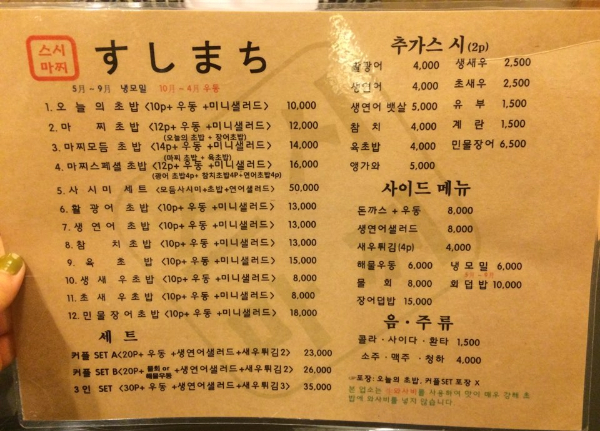 스시
마찌
すしまち
5月~9月 냉모밀 10月~4月 우동
1. 오늘의초밥<10p+ 우동 +미니샐러드> 10,000
2. 마찌초밥<12p+ 우동 +미니샐러드> 12,000
(오늘의 초밥 + 장어초밥)
3. 마찌모듬 초밥<14p+ 우동 +미니샐러드> 14,000
(마찌 초밥 + 육초밥)
4. 마찌스페셜 초밥<12p+ 우동 +미니샐러드> 16,000
(광어 초밥4p+ 참치초밥4P+연어초밥4p)
5. 사시미 세트<모듬사시미+초밥+연어샐러드> 50,000
6. 활광어초밥<10p+ 우동 +미니샐러드> 13,000
7. 생연어초밥<10p+ 우동 +미니샐러드> 13,000
8. 참치초밥<10p+ 우동 +미니샐러드> 13,000
9. 육초밥<10p+ 우동 +미니샐러드> 15,000
10. 생새우초밥<10p+ 우동 +미니샐러드> 8,000
11. 초새우초밥<10p+ 우동 +미니샐러드> 8,000
12. 민물장어초밥<10p+ 우동 +미니샐러드> 18,000
세트
커플 SET A<20P+ 우동 +생연어샐러드+새우튀김2> 23,000
커플 SET B<20P+ 물회 or 해물우동 +생연어샐러드+새우튀김2> 26,000
3인 SET <30P+ 우동 +생연어샐러드+새우튀김3> 35,000
추가스시(2p)
활광어 4,000 생새우 2,500
생연어 4,000 초새우 2,500
생연어 뱃살 5,000 유부 1,500
참치 4,000 계란 1,500
육초밥 4,000 민물장어 6,500
앵가와 5,000
사이드 메뉴
돈까스 + 우동 8,000
생연어샐러드 8,000
새우튀김(4p) 4,000
해물우동 6,000 냉모밀 6,000
물회 8,000 회덮밥 10,000
장어덮밥 15,000
음·주류
콜라·사이다·환타 1,500
소주·맥주·청하 4,000
☞포장: 오늘의 초밥, 커플SET 포장 X
본 업소는 생와사비를 사용하여 맛이 매우 강해 초
밥에 와사비를 넣지 않습니다.